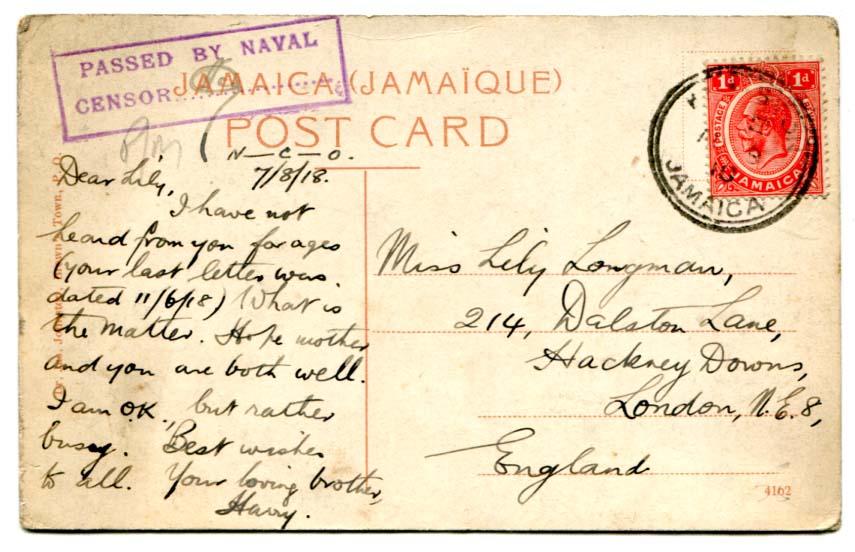 PASSED BY NAVAL
CENSOR
JAMAICA (JAMAÏQUE)
POST CARD
N—C—O.
7/8/18.
Dear Lily,
I have not
heard from you for ages
(your last letter was
dated 11/6/18) What is
the matter. Hope mother
and you are both well.
I am O.K., but rather
busy. Best wishes
to all. Your loving brother,
Harry.
1d 1d
POSTAGE
JAMAICA
JAMAICA
Miss Lily Longman,
214, Dalston Lane,
Hackney Downs,
London, N.E.8,
England
4162